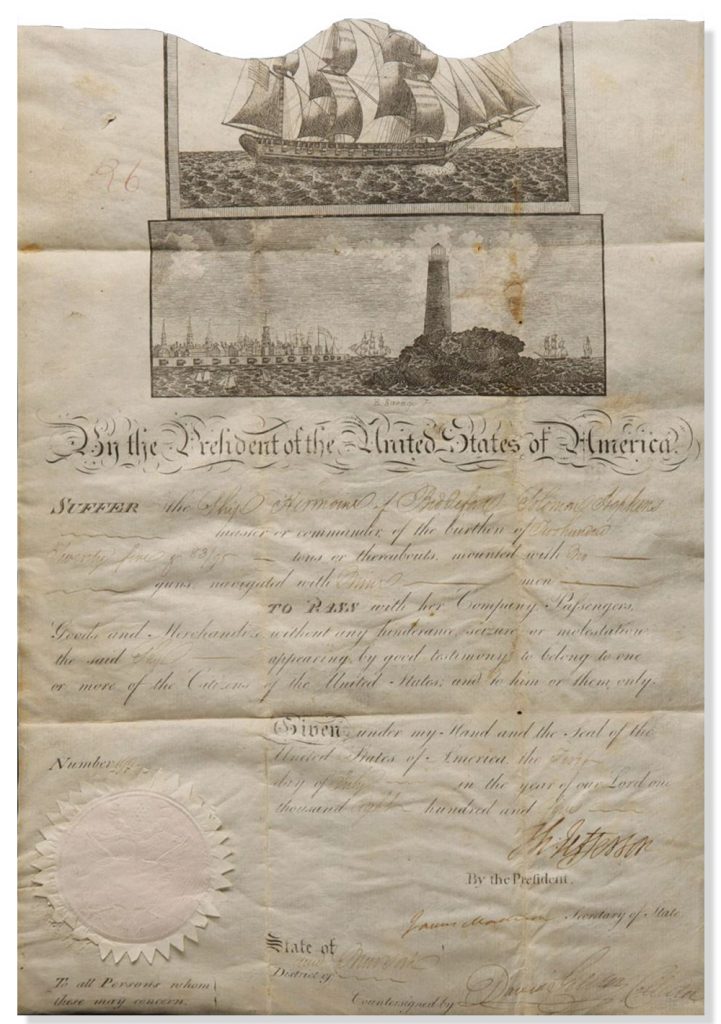 26
By the President of the United States of America.
SUFFER the Ship Hermione of Biddeford Solomon Hopkins
master or commander, of the burthen of Two hundred
Twenty five & 83/95 tons or thereabouts, mounted with no
guns, navigated with men
TO PASS with her Company, Passengers,
Goods and Merchandize without any hinderance, seizure, or molestation
the said Ship appearing by good testimony to belong to one
or more of the Citizens of the United States; and to him or them only.
Given under my Hand and the Seal of the
United States of America, the
day of July in the year of our Lord one
thousand Eight hundred and
Number
Th: Jefferson
By the President,
James Madison Secretary of State.
State of
District of
To all Persons whom
these may concern.
Countersigned by